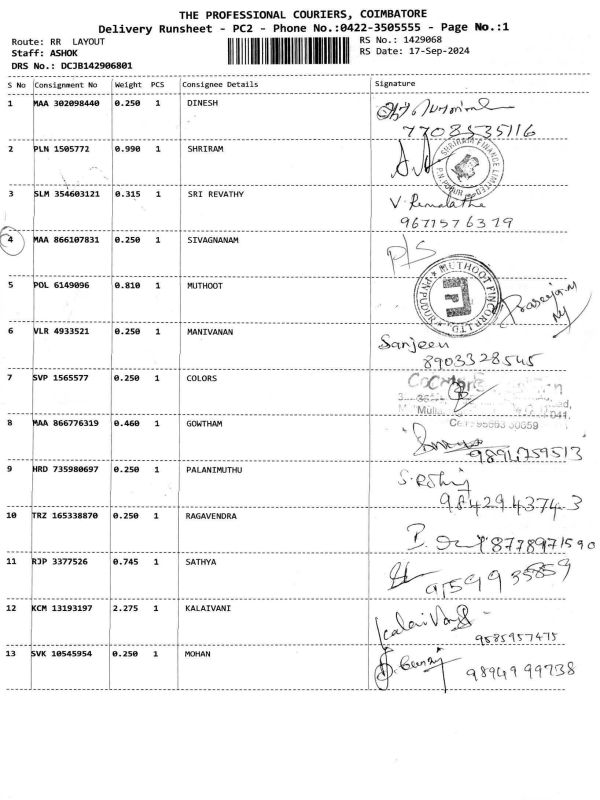 THE PROFESSIONAL COURIERS, COIMBATORE
Delivery Runsheet - PC2 - Phone No.:0422-3505555 - Page No.:1
Route: RR LAYOUT RS No.: 1429068
Staff: ASHOK RS Date: 17-Sep-2024
DRS No.: DCJB142906801
S No Consignment No Weight PCS Consignee Details Signature
1 MAA 302098440 0.250 1 DINESH
7708535116
2 PLN 1505772 0.990 1 SHRIRAM
SHRIRAM FINANCE LIMITED
3 SLM 354603121 0.315 1 SRI REVATHY
V. Remalatha
9671576379
4 MAA 866107831 0.250 1 SIVAGNANAM P/S
5 POL 6149096 0.810 1 MUTHOOT
MUTHOOT FINCORP LTD. PN PUDUR
6 VLR 4933521 0.250 1 MANIVANAN Sanjeen
8903328545
7 SVP 1565577 0.250 1 COLORS
8 MAA 866776319 0.460 1 GOWTHAM
9894759513
9 HRD 735980697 0.250 1 PALANIMUTHU
9842943743
10 TRZ 165338870 0.250 1 RAGAVENDRA
8778971590
11 RJP 3377526 0.745 1 SATHYA
9159935859
12 KCM 13193197 2.275 1 KALAIVANI
9585957475
13 SVK 10545954 0.250 1 MOHAN
9894999738